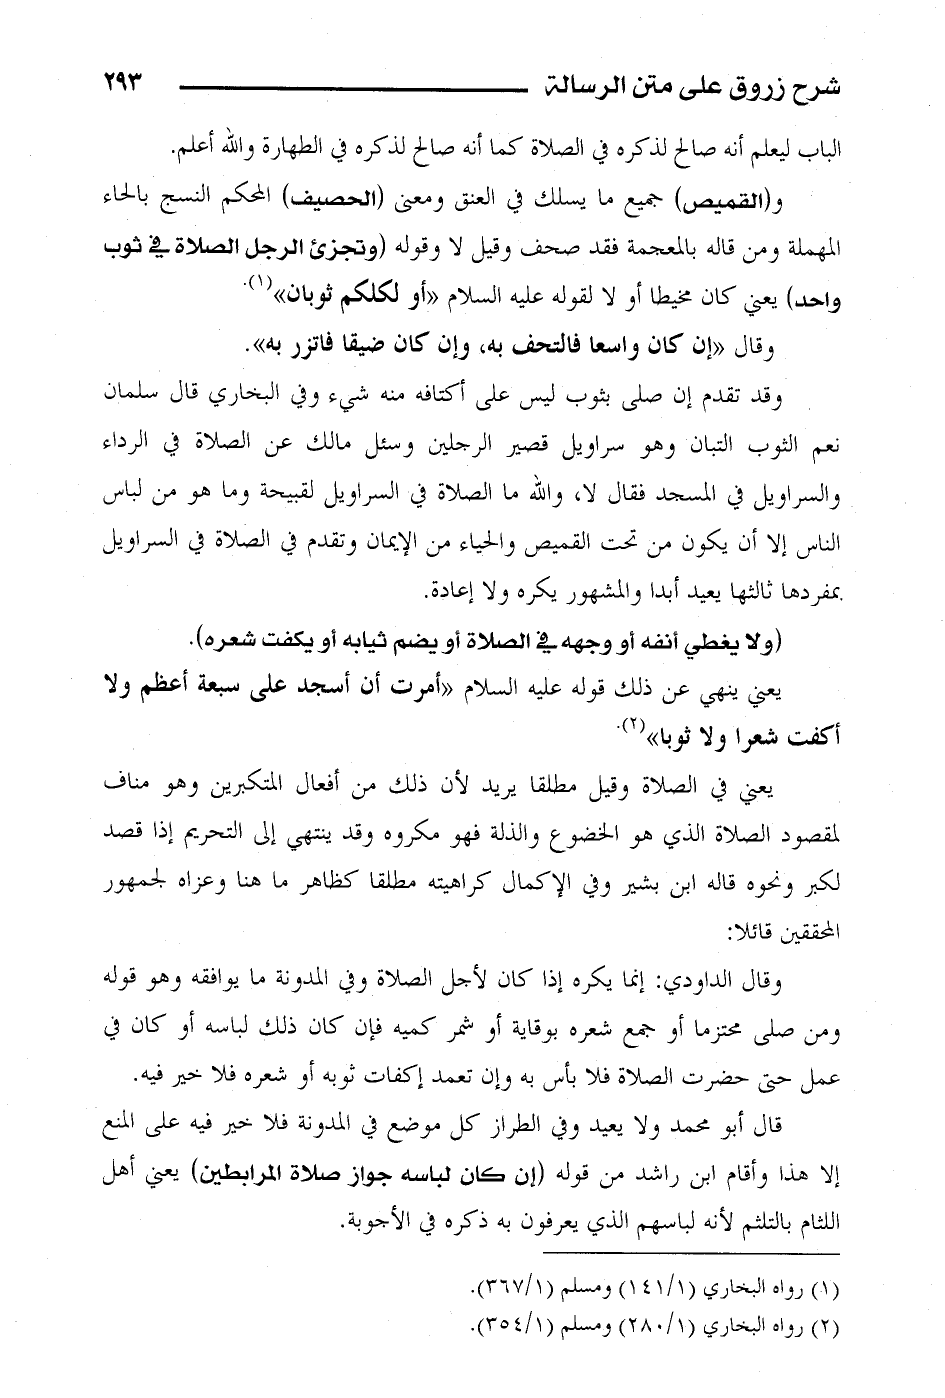 شرح زروق على متن الرسالة ٢٩٣
الباب ليعلم أنه صالح لذكره في الصلاة كما أنه صالح لذكره في الطهارة والله أعلم.
و(القميص) جميع ما يسلك في العنق ومعنى (الحصيف) المحكم النسج بالحاء
المهملة ومن قاله بالمعجمة فقد صحف وقيل لا وقوله (وتجزئ الرجل الصلاة في ثوب
واحد) يعني كان مخيطا أو لا لقوله عليه السلام «أو لكلكم ثوبان»(١).
وقال «إن كان واسعا فالتحف به، وإن كان ضيقا فاتزر به».
وقد تقدم إن صلى بثوب ليس على أكتافه منه شيء وفي البخاري قال سلمان
نعم الثوب التبان وهو سراويل قصير الرجلين وسئل مالك عن الصلاة في الرداء
والسراويل في المسجد فقال لا، والله ما الصلاة في السراويل لقبيحة وما هو من لباس
الناس إلا أن يكون من تحت القميص والحياء من الإيمان وتقدم في الصلاة في السراويل
بمفردها ثالثها يعيد أبدا والمشهور يكره ولا إعادة.
(ولا يغطي أنفه أو وجهه في الصلاة أو يضم ثيابه أو يكفت شعره).
يعني ينهي عن ذلك قوله عليه السلام «أمرت أن أسجد على سبعة أعظم ولا
أكفت شعرا ولا ثوبا»(٢).
يعني في الصلاة وقيل مطلقا يريد لأن ذلك من أفعال المتكبرين وهو مناف
لمقصود الصلاة الذي هو الخضوع والذلة فهو مكروه وقد ينتهي إلى التحريم إذا قصد
لكبر ونحوه قاله ابن بشير وفي الإكمال كراهيته مطلقا كظاهر ما هنا وعزاه لجمهور
المحققين قائلا:
وقال الداودي: إنما يكره إذا كان لأجل الصلاة وفي المدونة ما يوافقه وهو قوله
ومن صلى محتزما أو جمع شعره بوقاية أو شمر كميه فإن كان ذلك لباسه أو كان في
عمل حتى حضرت الصلاة فلا بأس به وإن تعمد إكفات ثوبه أو شعره فلا خير فيه.
قال أبو محمد ولا يعيد وفي الطراز كل موضع في المدونة فلا خير فيه على المنع
إلا هذا وأقام ابن راشد من قوله (إن كان لباسه جواز صلاة المرابطين) يعني أهل
اللثام بالتلثم لأنه لباسهم الذي يعرفون به ذكره في الأجوبة.
(١) رواه البخاري (١/ ١٤١) ومسلم (١/ ٣٦٧).
(٢) رواه البخاري (١/ ٢٨٠) ومسلم (١/ ٣٥٤).